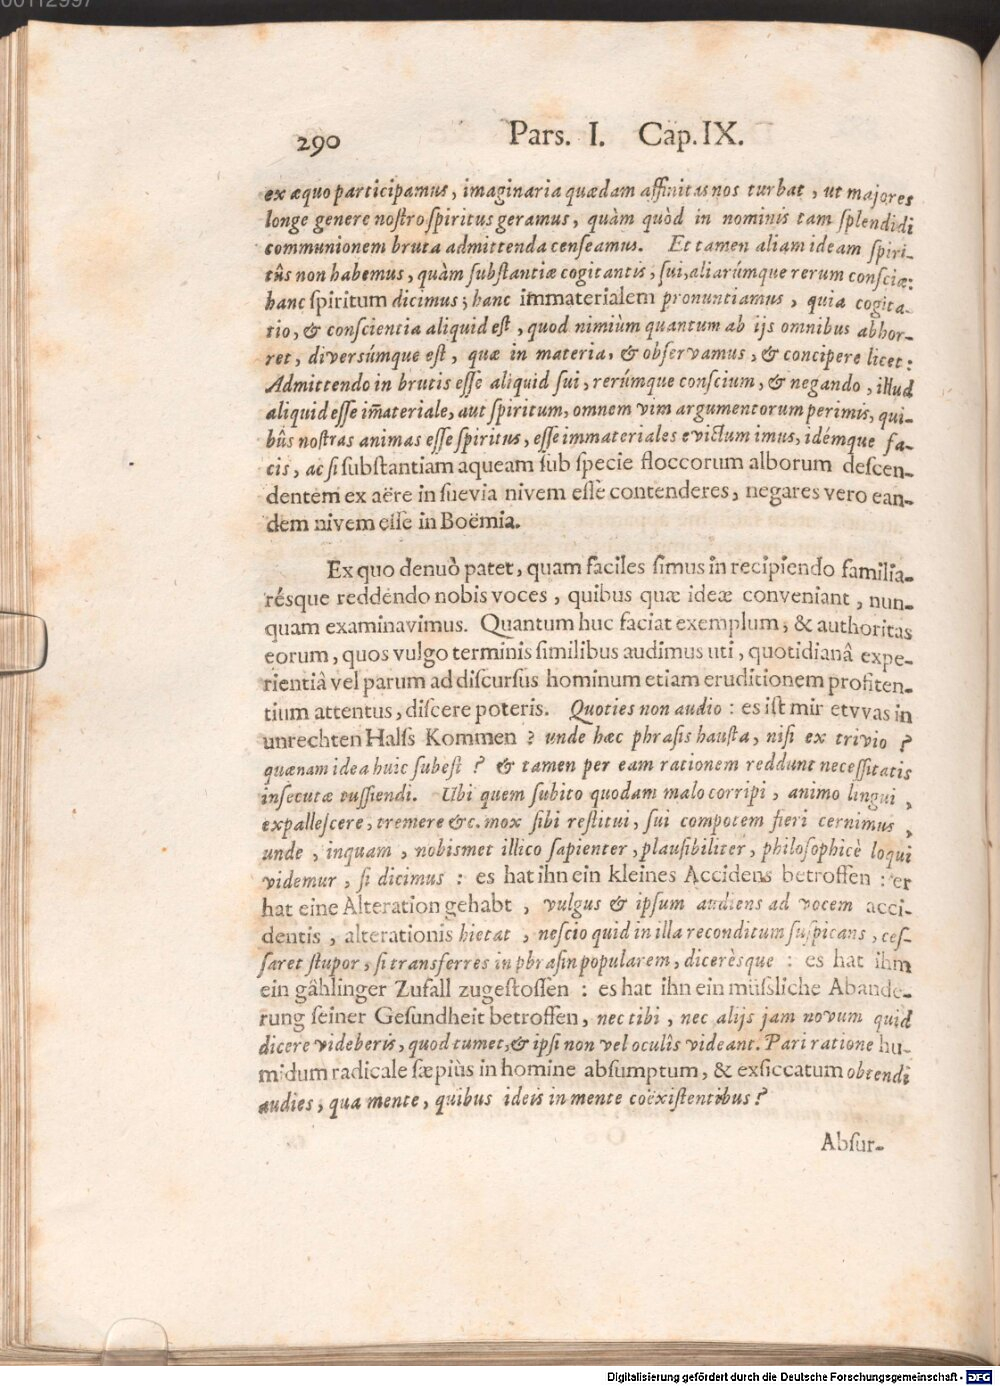 00112997
290 Pars. I. Cap. IX.
ex æquo participamus, imaginaria quædam affinitas nos turbat, ut majores
longe genere nostro spiritus geramus, quàm quòd in nominis tam splendidi
communionem bruta admittenda censeamus. Et tamen aliam ideam spiri-
tûs non habemus, quàm substantiæ cogitantis, sui, aliarúmque rerum consciæ:
hanc spiritum dicimus; hanc immaterialem pronuntiamus, quia cogita-
tio, & conscientia aliquid est, quod nimiùm quantum ab ijs omnibus abhor-
ret, diversúmque est, quæ in materia, & observamus, & concipere licet:
Admittendo in brutis esse aliquid sui, rerúmque conscium, & negando, illud
aliquid esse im̃ateriale, aut spiritum, omnem vim argumentorum perimis, qui-
bûs nostras animas esse spiritus, esse immateriales evictum imus, idémque fa-
cis, ac si substantiam aqueam sub specie floccorum alborum descen-
dentem ex aëre in suevia nivem esse contenderes, negares vero ean-
dem nivem esse in Boëmia.
Ex quo denuò patet, quam faciles simus in recipiendo familia-
résque reddendo nobis voces, quibus quæ ideæ conveniant, nun-
quam examinavimus. Quantum huc faciat exemplum, & authoritas
eorum, quos vulgo terminis similibus audimus uti, quotidianâ expe-
rientiâ vel parum ad discursus hominum etiam eruditionem profiten-
tium attentus, discere poteris. Quoties non audio: es ist mir etvvas in
unrechten Halss Kommen? unde hæc phrasis hausta, nisi ex trivio?
quænam idea huic subest? & tamen per eam rationem reddunt necessitatis
insecutæ tussiendi. Ubi quem subito quodam malo corripi, animo lingui,
expallescere, tremere &c. mox sibi restitui, sui compotem fieri cernimus,
unde, inquam, nobismet illico sapienter, plausibiliter, philosophicè loqui
videmur, si dicimus: es hat ihn ein kleines Accidens betroffen: er
hat eine Alteration gehabt, vulgus & ipsum audiens ad vocem acci-
dentis, alterationis hietat, nescio quid in illa reconditum suspicans, ces-
saret stupor, si transferres in phrasin popularem, dicerèsque: es hat ihm
ein gâhlinger Zufall zugestossen: es hat ihn ein müssliche Abande-
rung seiner Gesundheit betroffen, nec tibi, nec alijs jam novum quid
dicere videberis, quod tumet, & ipsi non vel oculîs videant. Pari ratione hu-
midum radicale sæpiùs in homine absumptum, & exsiccatum obtendi
audies, qua mente, quibus ideis in mente coëxistentibus?
Absur-
Digitalisierung gefördert durch die Deutsche Forschungsgemeinschaft - DFG